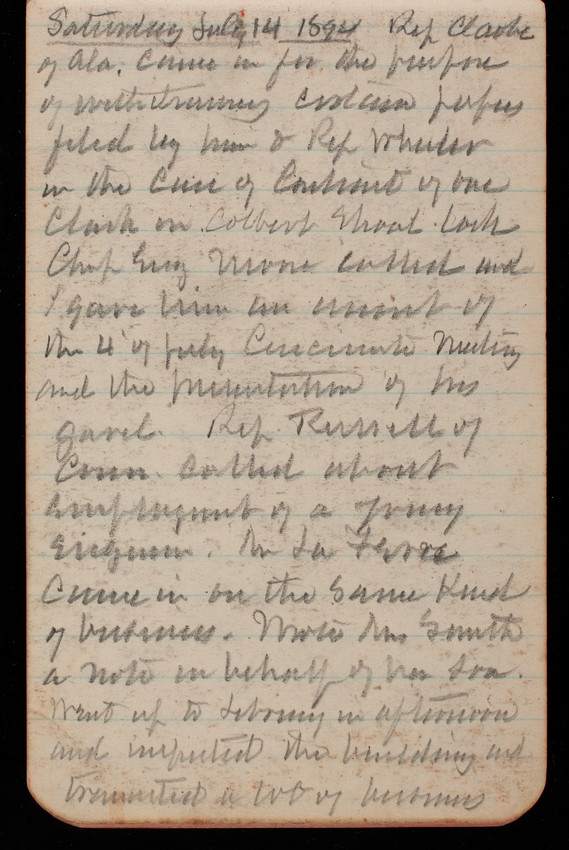 Saturday July 14 1894 Rep Clarke
of Ala. came in for the purpose
of withdrawing certain papers
filed by him & Rep Wheeler
in the case of Contract of one
Clark on Colbert Shoal Lock
Chf Eng Moore called and
I gave him an account of
the 4" of July Cincinnati Meeting
and the presentation of his
gavel. Rep Russell of
Conn. called about
employment of a young
Engineer. Mr La
came in on the same kind
of business. Wrote Mrs Smith
a note in behalf of her son.
Went up to Library in afternoon
and inspected the building and
transacted a lot of business